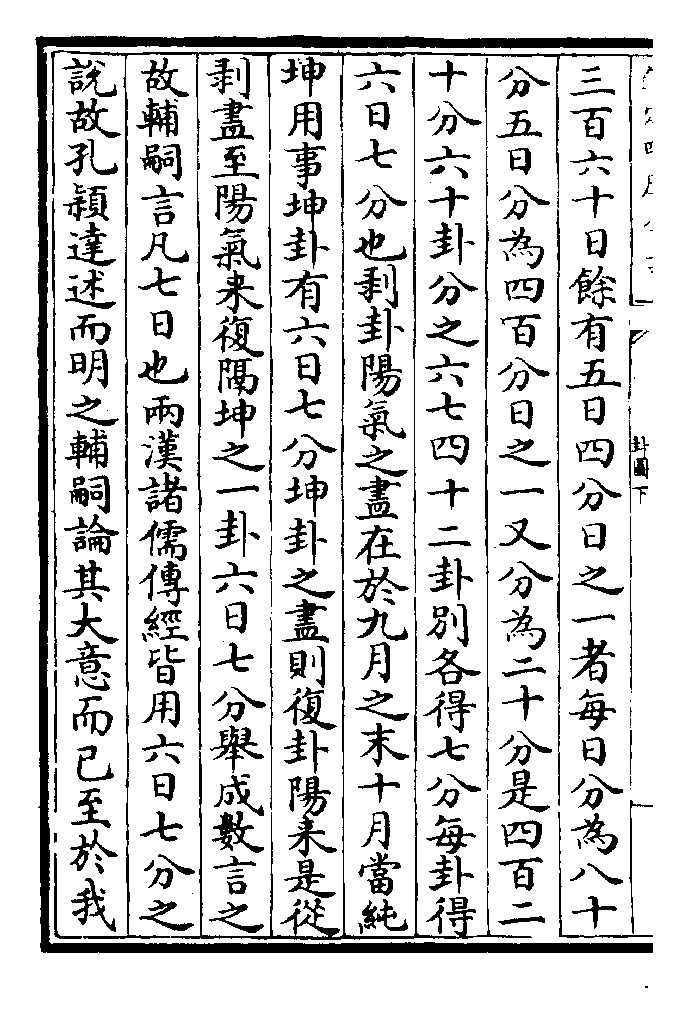 卦圖下
三百六十日餘有五日四分日之一者每日分為八十
分五日分為四百分日之一又分為二十分是四百二
十分六十卦分之六七四十二卦別各得七分每卦得
六日七分也剥卦陽氣之盡在於九月之末十月當純
坤用事坤卦有六日七分坤卦之盡則復卦陽来是從
剥盡至陽氣来復隔坤之一卦六日七分舉成數言之
故輔嗣言凡七日也兩漢諸儒傳經皆用六日七分之
說故孔頴達述而明之輔嗣論其大意而已至於我